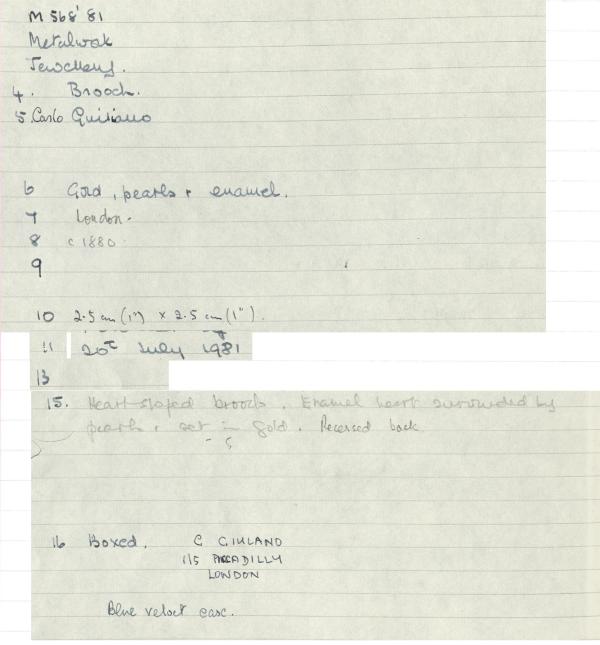 M 568' 81
Metalwork
Jewellery.
4. Brooch.
5 Carlo Guiliano
6 Gold, pearls + enamel.
7 London.
8 c 1880.
9
10 2.5 cm (1") x 2.5 cm (1").
11 July 1981
13
15. Heart-shaped brooch. Enamel heart surrounded by
pearls, set in gold. Recessed back
16 Boxed. C GIULIANO
115 PICCADILLY
LONDON
Blue velvet case.